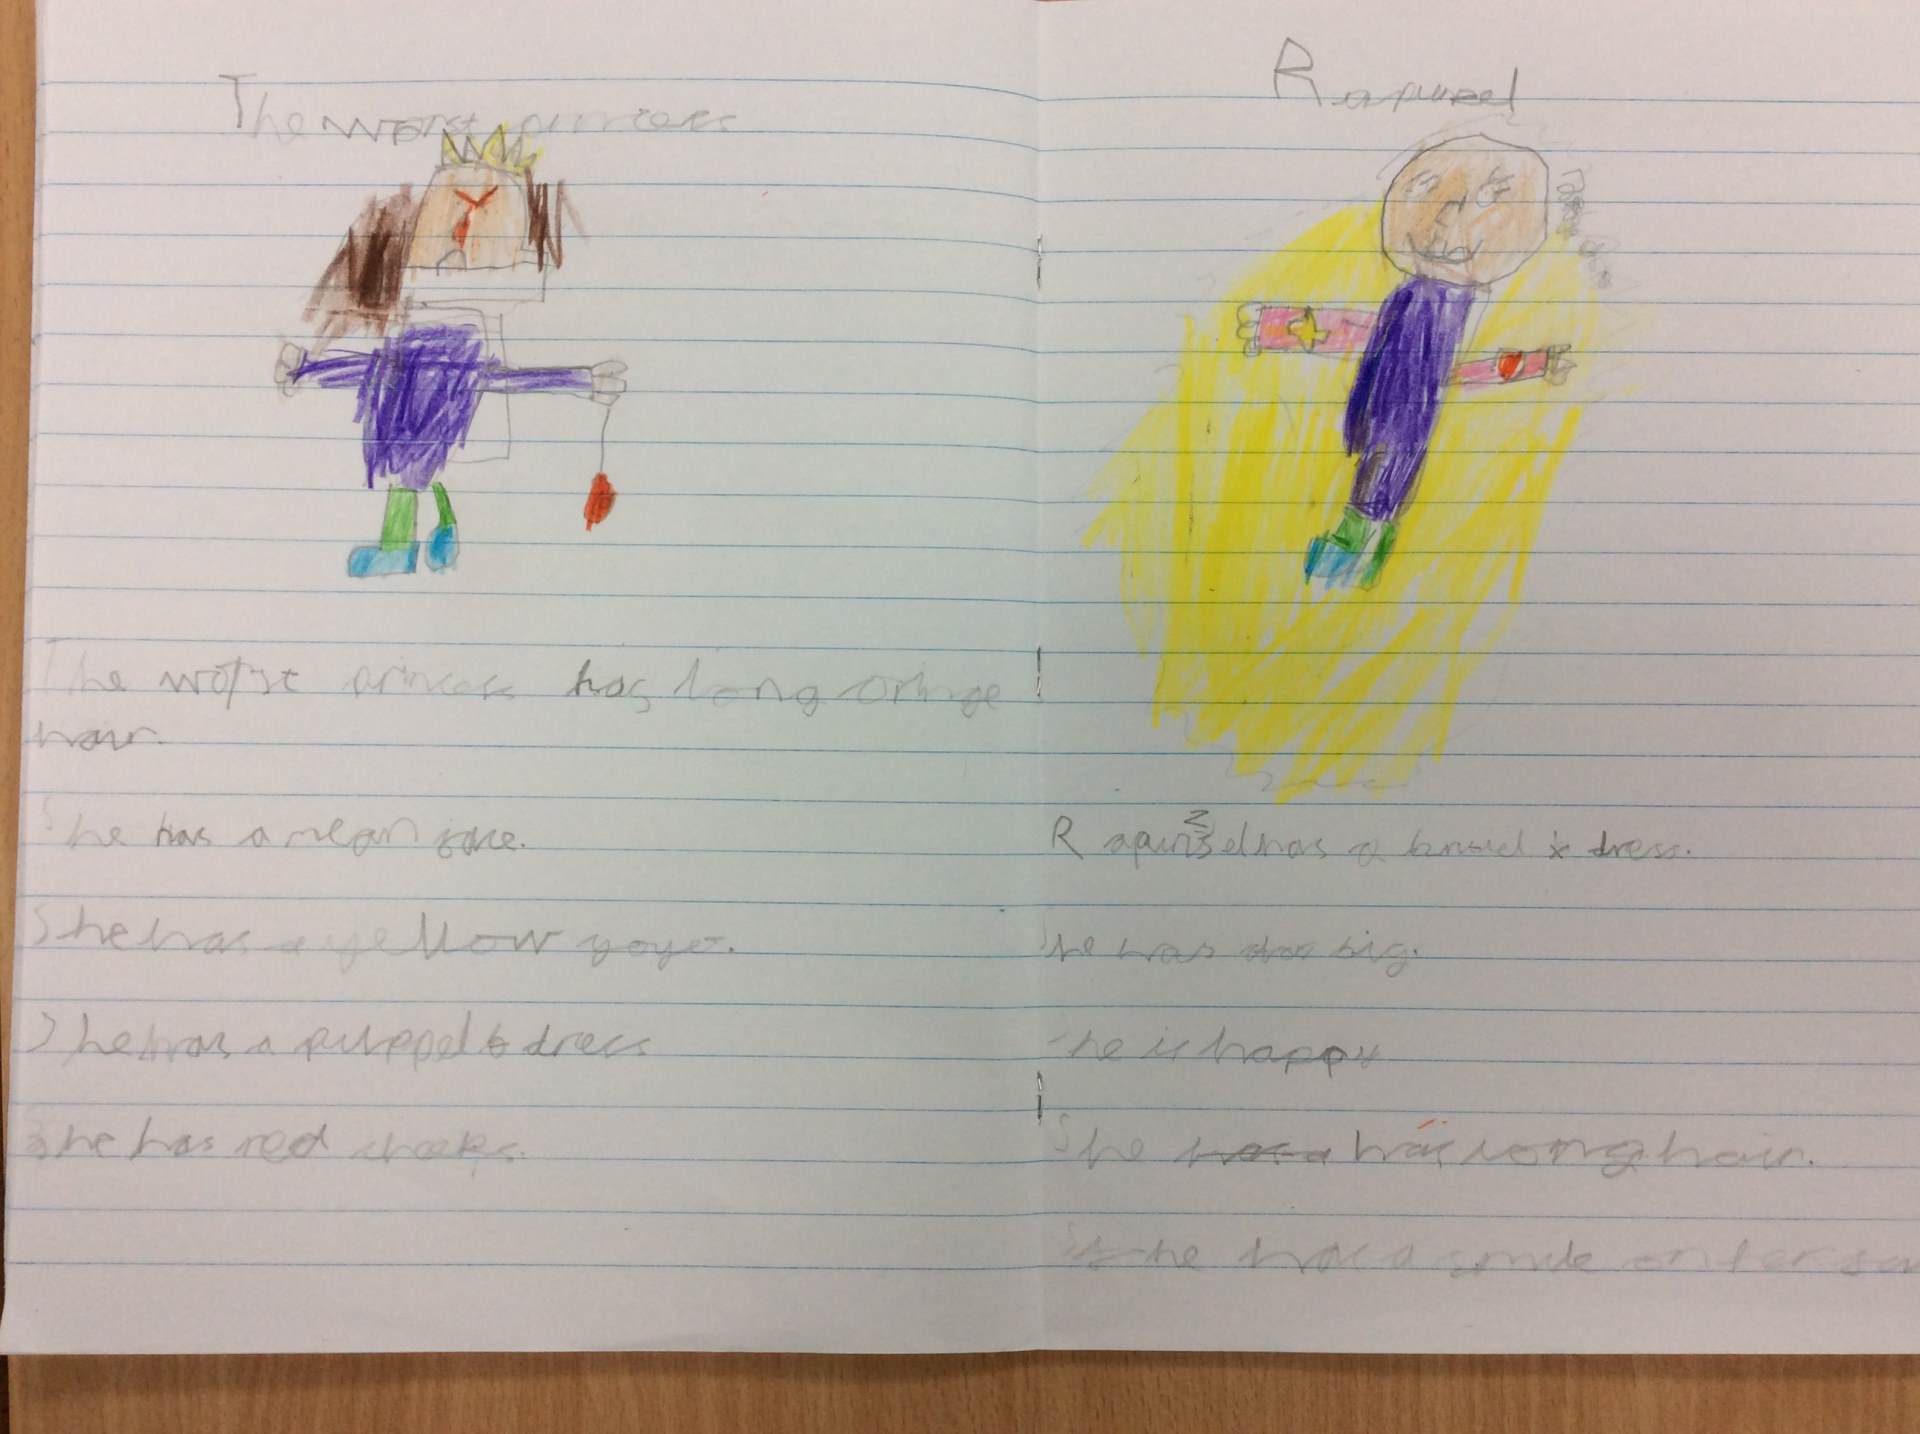 The worst princess
The worst princess has long oringe
hair.
She has a mean face.
She has a yellow yoyo.
She has a purppel dress
She has red cheeks.
Rapunzel
Rapunzel has a dress.
She has big.
She is happy
She has long hair.
She has a smile on her